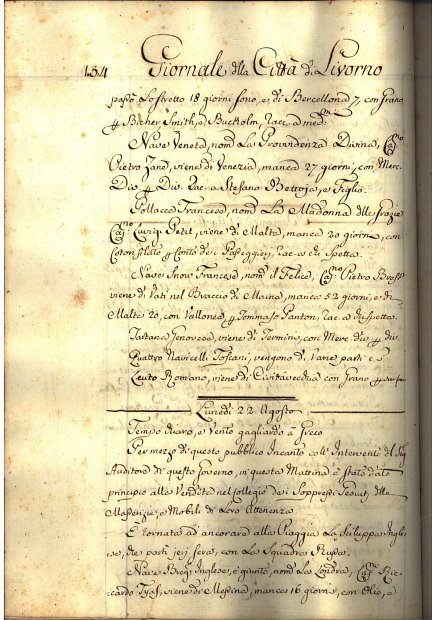 134 Giornale della Città di Livorno
passò Lo stretto 18 giorni sono, e di Bercellona 7, con Grano,
Bicher Smith, e Buckolm, Racc. a med.mi
Nave Veneta, nom.a La Providenza Divina, Cap.no
Pietro Zane, viene di Venezia, manca 27 giorni, con Merc.
Div. p Div. Rac. a Stefano Bettoja, e Figlio.
Pollacca Francese, nom.a La Madonna delle Grazie
Cap.no Luigi Petit, viene di Malta, manca 20 giorni, con
Coton filato p Conto dei Passeggieri, Rac. a chi Spetta.
Nave Snow Francese, nom.a il Felice, Cap.no Pietro
viene di Vati nel Braccio di Maina, manca 52 giorni, e di
Malta 20, con Vallonea p Tommaso Panton, Rac. a chi spetta.
Tartana Genovese, viene di Termini, con Merc. div. p div.
Quattro Navicelli Toscani, vengono di Varie parti e
Leuto Romano, viene di Civitavecchia con Grano
Lunedi 22 Agosto
Tempo chiaro, e Vento gagliardo a Greco
Per mezo di questo pubblico Incanto coll' Intervento del Sig.
Auditore di questo Governo, in questa Mattina è stato dato
principio alle Vendite nel Collegio dei Soppressi Gesuiti, delle
Masserizie, e Mobili di Loro Attenenza
È tornata ad ancorare alla Piaggia La Sciluppa Ingle
se, che partì jeri sera, con La Squadra Russa.
Nave Brig. Inglese, è giunto, nom.a La Londra, Cap.no Ric-
cardo, viene di Messina, manca 16 giorni, con Olio, e